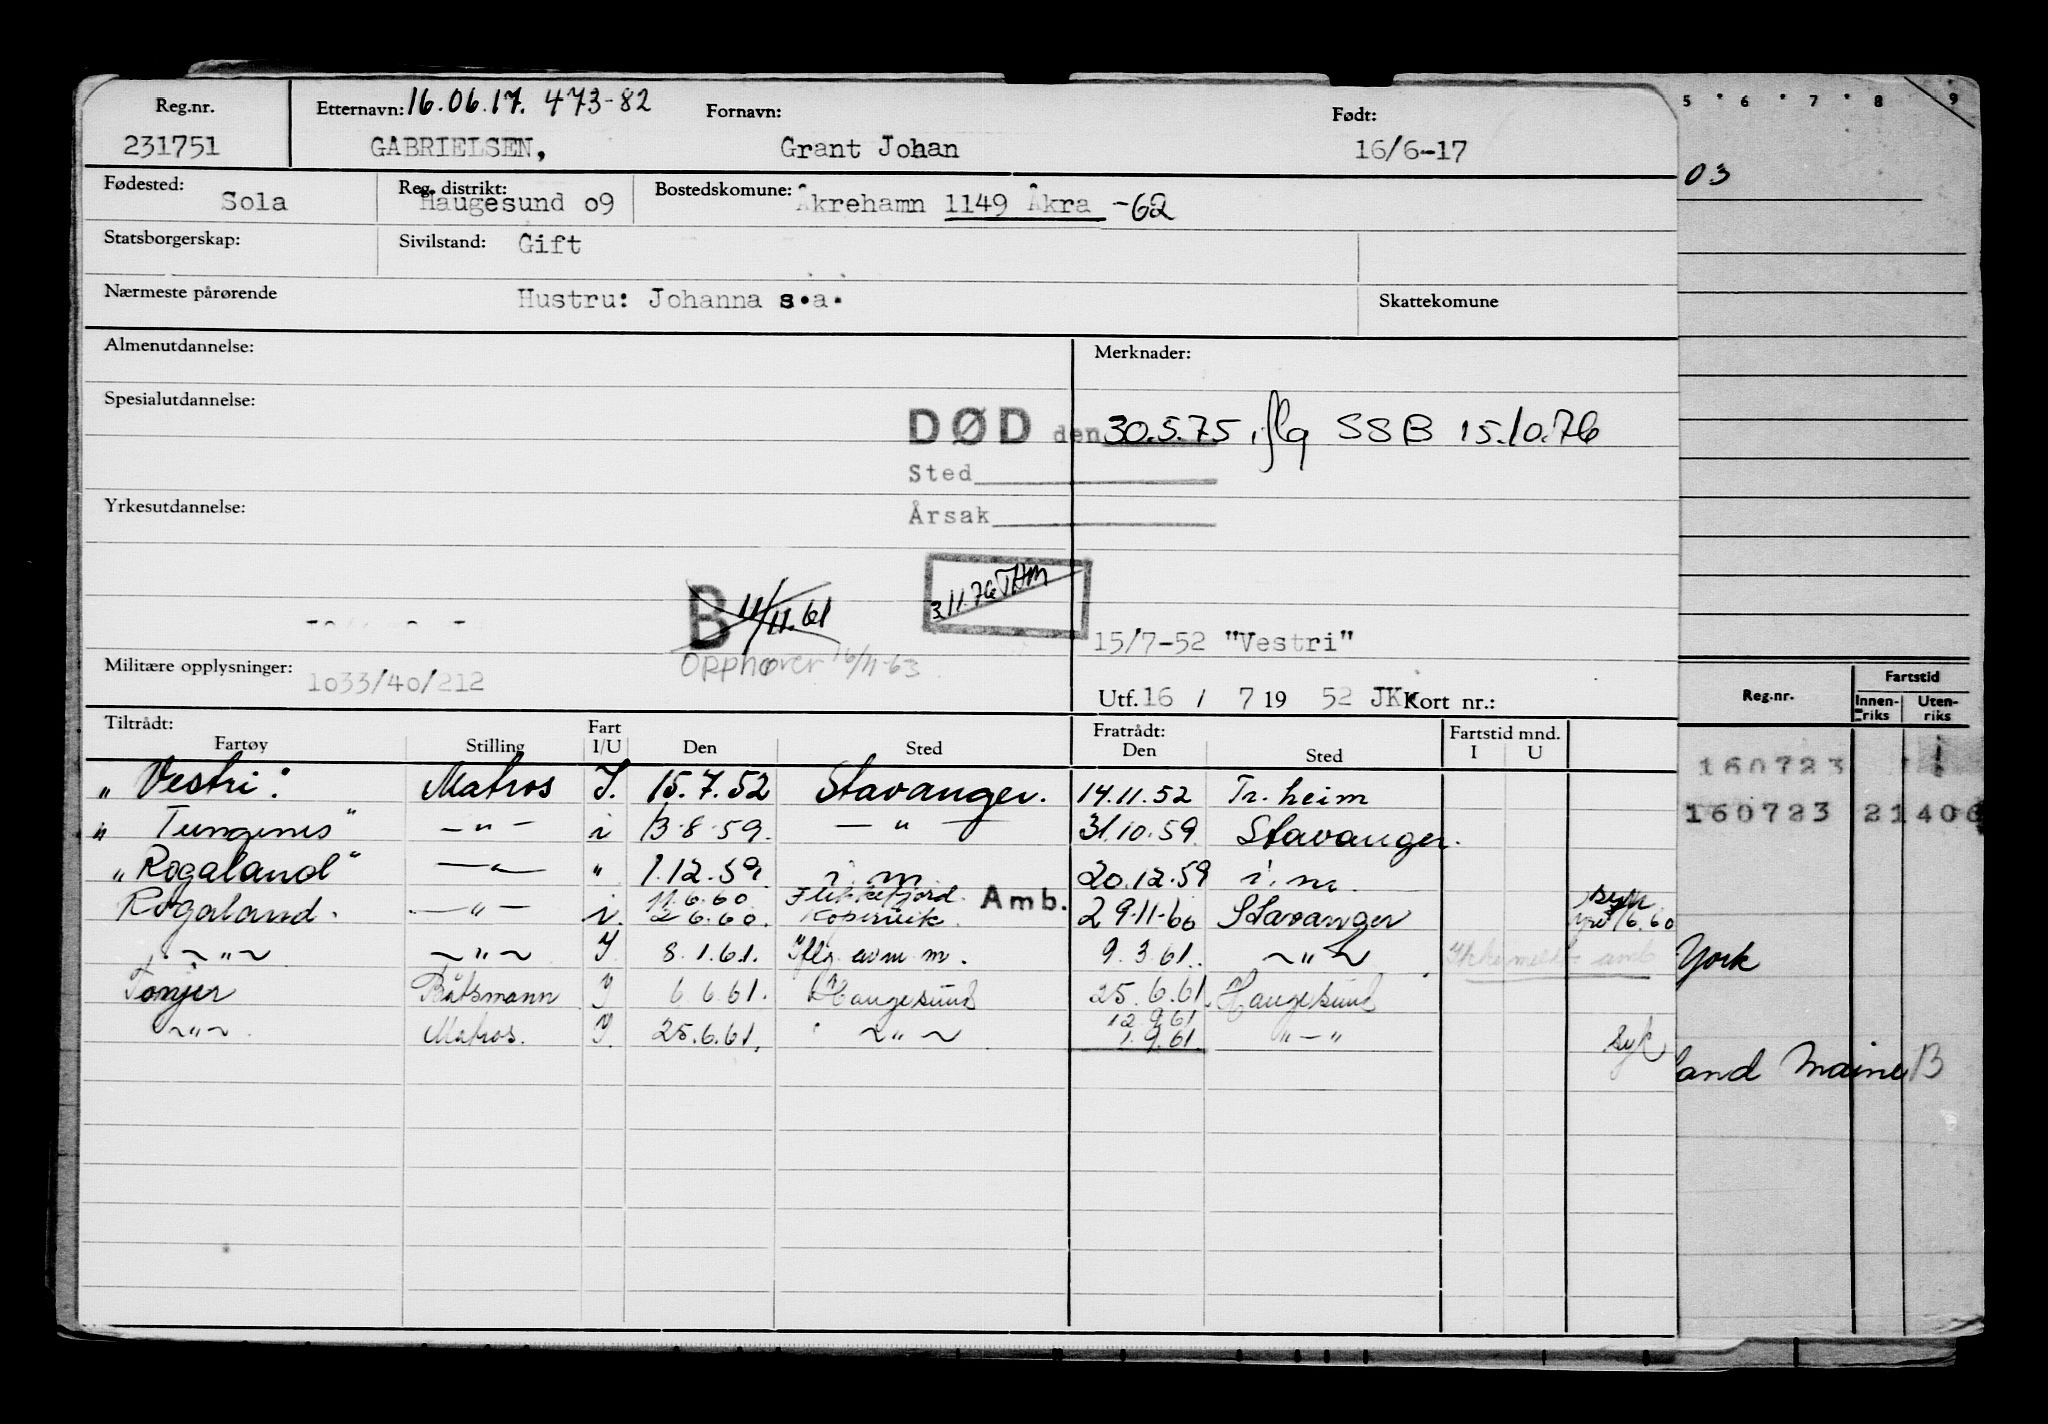 Reg.nr. Etternavn: 16.06.17. 473-82 Fornavn: Født:
231751 GABRIELSEN, Grant Johan 16/6-17
Fødested: Sola Reg. distrikt: Haugesund o9 Bostedskomune: Åkrehamn 1149 Åkra -62
Statsborgerskap: Sivilstand: Gift
Nærmeste pårørende Hustru: Johanna s.a. Skattekomune
Almenutdannelse: Merknader:
Spesialutdannelse:
DØD den 30.5.75, iflg SSB 15.10.76
Sted
Yrkesutdannelse: Årsak
3.11.76 THM
B 11/11.61
15/7-52 "Vestri"
Opphører 16/11-63
Militære opplysninger: 1033/40/212
Utf. 16 / 7 19 52 JK. Kort nr.:
Tiltrådt: Fart Fratrådt: Fartstid mnd.
Fartøy Stilling I/U Den Sted Den Sted I U
"Vestri" Matros I. 15.7.52 Stavanger. 14.11.52 Tr.heim
"Tungenes" —"— i 13.8.59. —"— 31.10.59 Stavanger.
"Rogaland" —"— " 1.12.59. i.m 20.12.59 i.m.
11.6.60 Flekkefjord. Amb. syk
Rogaland. —"— i. 2 6.60. Kopervik 29-11-60 Stavanger 1/6.60
~"~ ~"~ I 8.1.61. Iflg. avm.m. 9.3.61. ~"~ Ikke meldt amb
Tonjer Båtsmann I 6.6.61. Haugesund 25.6.61. Haugesund
12.9.61
~"~ Matros. I. 25.6.61. ~"~ 1.9.61. "—" syk
5 6 7 8 9
03
Reg.nr. Fartstid
Innen-riks Uten-riks
160723
160723 21406
York
land Maine B